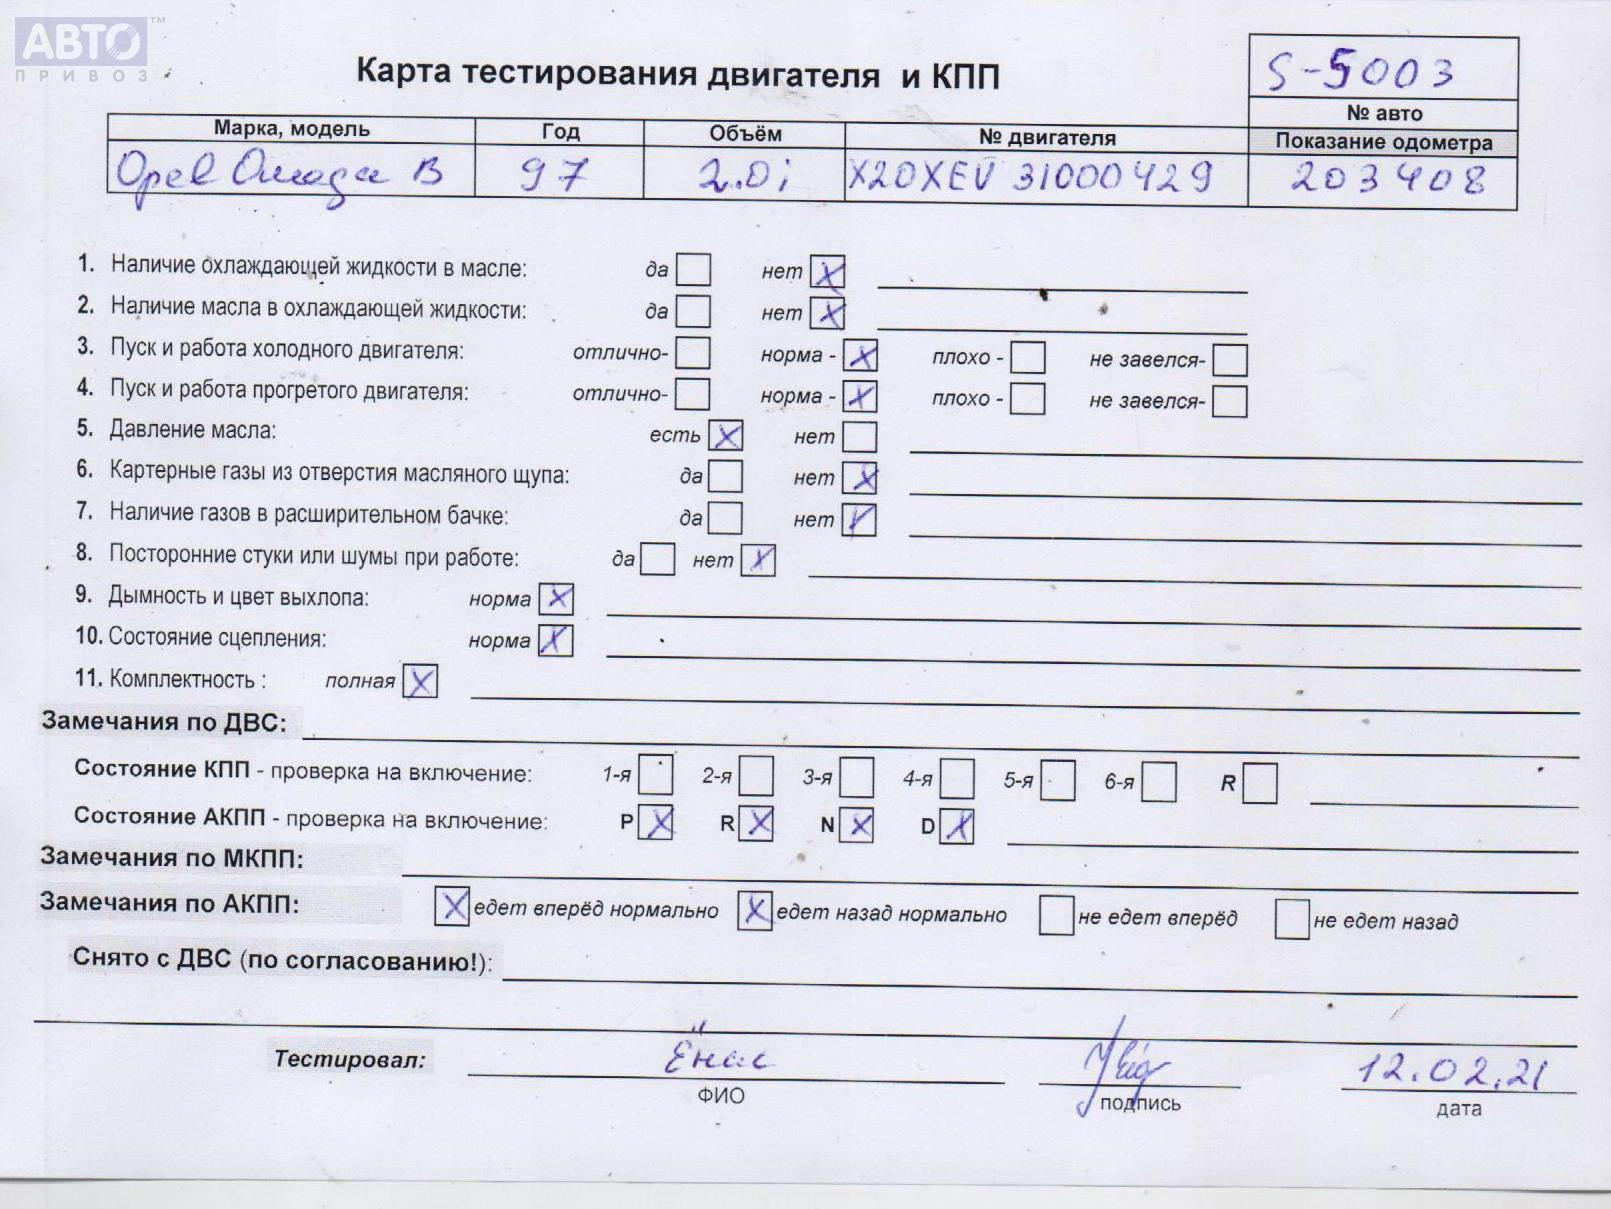 АВТО™
ПРИВОЗ
Карта тестирования двигателя и КПП
S-5003
№ авто
Марка, модель Год Объём № двигателя Показание одометра
Opel Омега В 97 2.0i X20XEV 31000429 203408
1. Наличие охлаждающей жидкости в масле: да нет X
2. Наличие масла в охлаждающей жидкости: да нет X
3. Пуск и работа холодного двигателя: отлично- норма - X плохо - не завелся-
4. Пуск и работа прогретого двигателя: отлично- норма - X плохо - не завелся-
5. Давление масла: есть X нет
6. Картерные газы из отверстия масляного щупа: да нет X
7. Наличие газов в расширительном бачке: да нет V
8. Посторонние стуки или шумы при работе: да нет X
9. Дымность и цвет выхлопа: норма X
10. Состояние сцепления: норма X
11. Комплектность : полная X
Замечания по ДВС:
Состояние КПП - проверка на включение: 1-я 2-я 3-я 4-я 5-я 6-я R
Состояние АКПП - проверка на включение: P X R X N X D X
Замечания по МКПП:
Замечания по АКПП: X едет вперёд нормально X едет назад нормально не едет вперёд не едет назад
Снято с ДВС (по согласованию!):
Тестировал: Ёнас 12.02.21
ФИО подпись дата